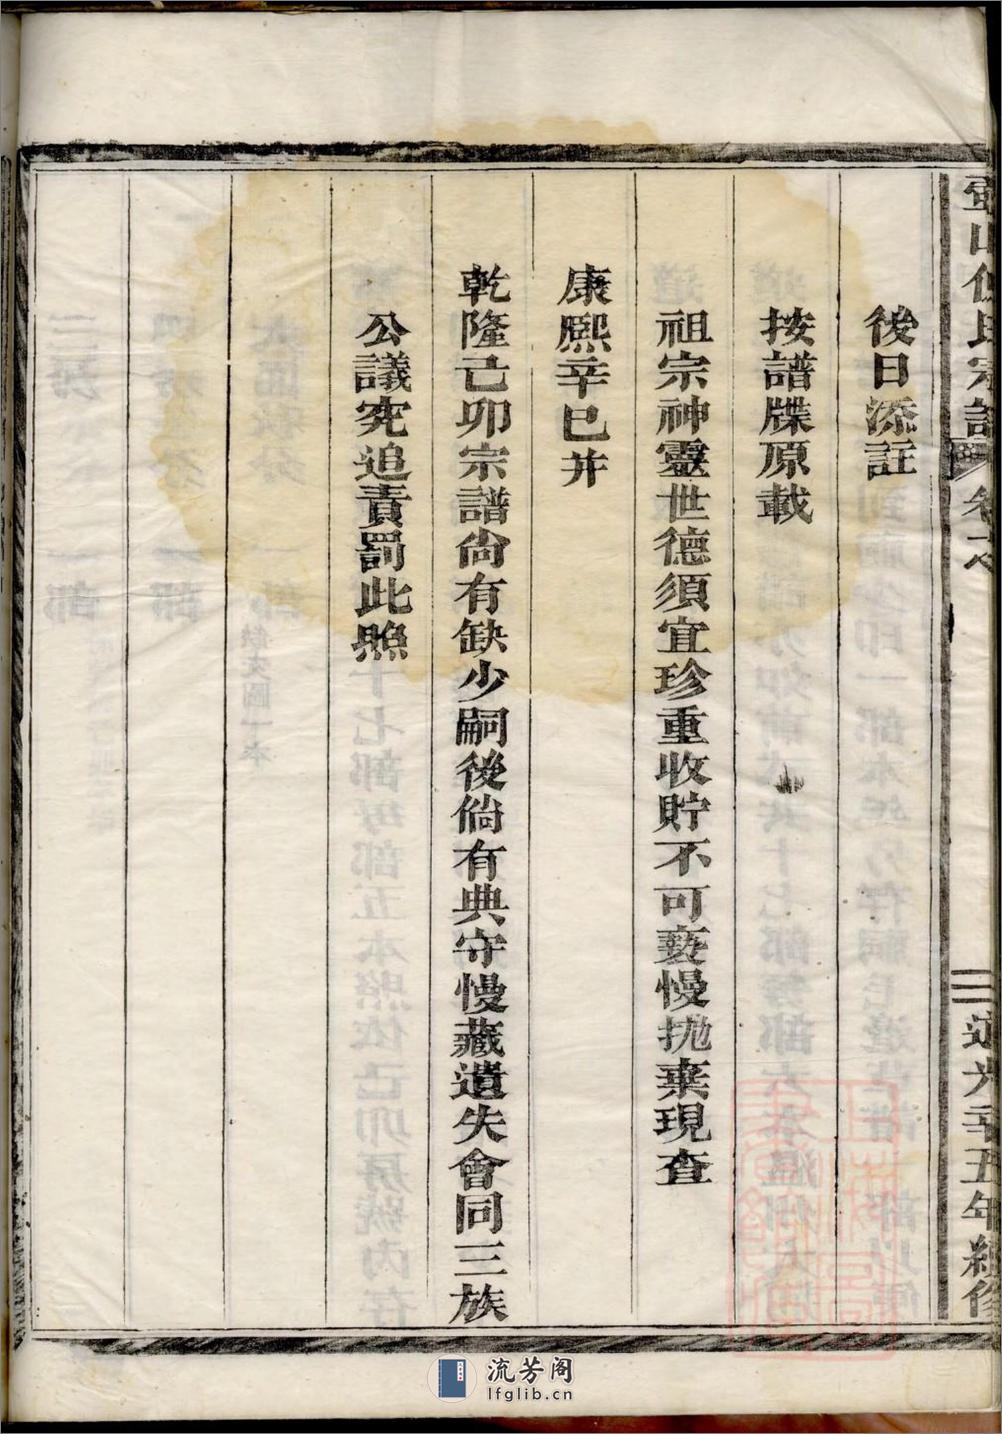 後日添註
按譜牒原載
祖宗神靈世德須宜珍重收貯不可褻慢拋棄現查
康熙辛巳并
乾隆己卯宗譜尙有缺少嗣後倘有典守慢藏遺失會同三族
公議究追責罰此照
氏宗譜
三
道光十五年
流芳阁
lfglib.cn